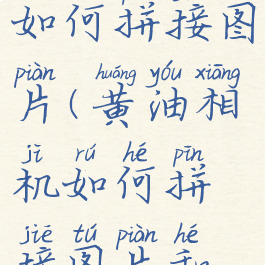 如何拼接图
piàn huáng yóu xiāng
片(黄油相
jī rú hé pīn
机如何拼
jiē tú piàn hé
接图片和